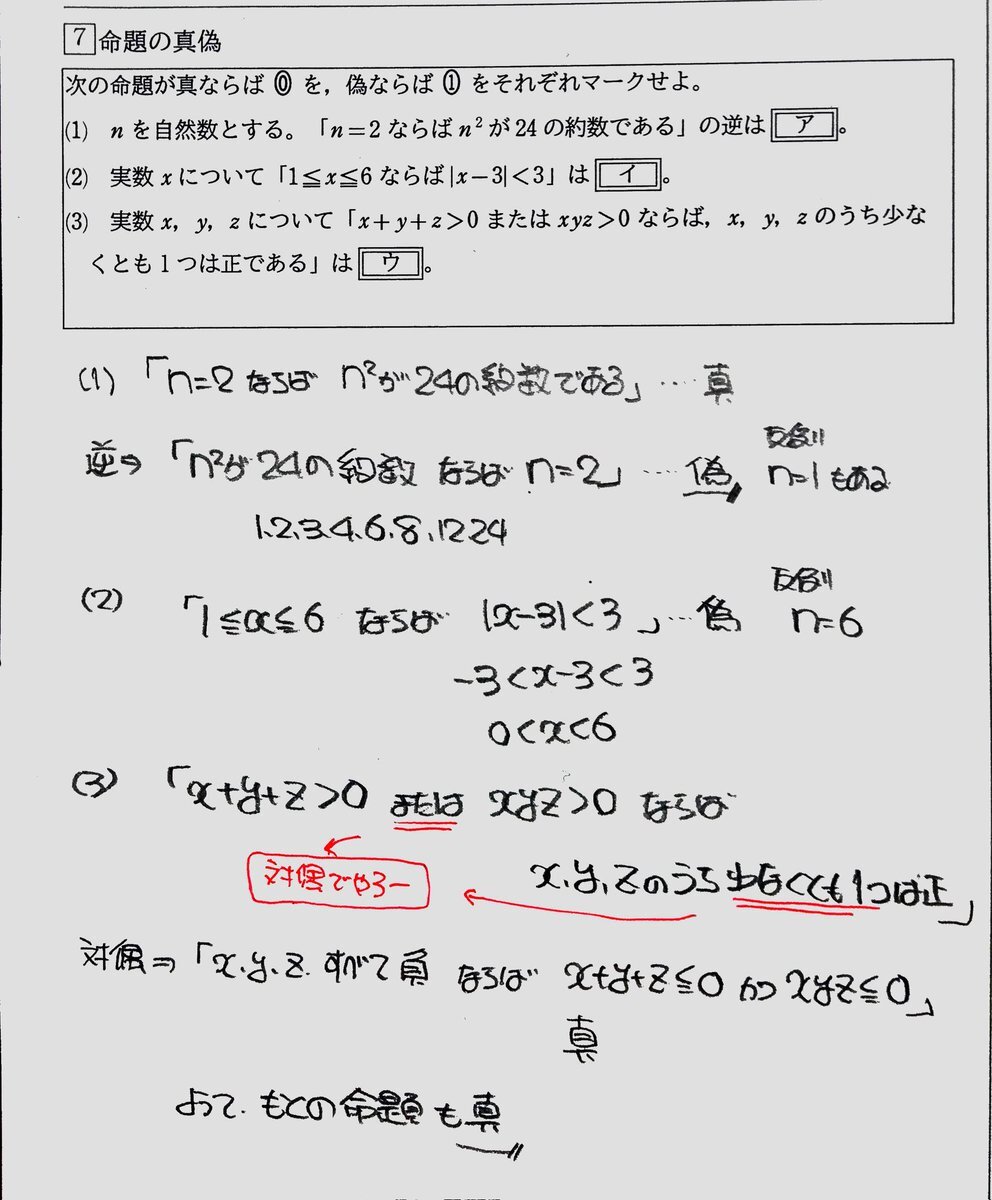 7 命題の真偽
次の命題が真ならば ⓪ を，偽ならば ① をそれぞれマークせよ。
(1) nを自然数とする。「n=2ならばn²が24の約数である」の逆は ア 。
(2) 実数xについて「1≦x≦6ならば|x−3|<3」は イ 。
(3) 実数x，y，zについて「x+y+z>0またはxyz>0ならば，x，y，zのうち少な
くとも1つは正である」は ウ 。
(1) 「n=2ならば n²が24の約数である」… 真
反例
逆⇒ 「n²が24の約数 ならば n=2」… 偽 n=1もある
1.2.3.4.6.8.12 24
反例
(2) 「1≦x≦6 ならば |x-3|<3」… 偽 n=6
-3<x-3<3
0<x<6
(3) 「x+y+z>0 または xyz>0 ならば
対偶でやろー
x、y、zのうち少なくとも1つは正」
対偶⇒「x.y.z.すべて負 ならば x+y+z≦0 かつ xyz≦0」
真
よって.もとの命題も真